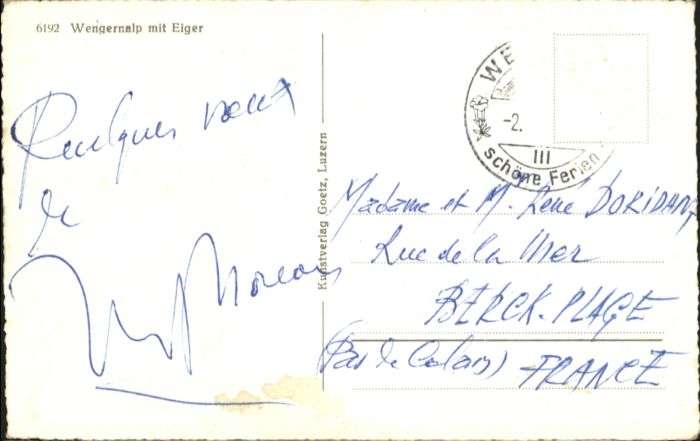 6192 Wengernalp mit Eiger
Quelques vœux
de
Moreau
Kunstverlag Goetz, Luzern
WE
-2.
III
schöne Ferien
Madame et M. René DORIDANT
Rue de la Mer
BERCK-PLAGE
(Pas de Calais) FRANCE